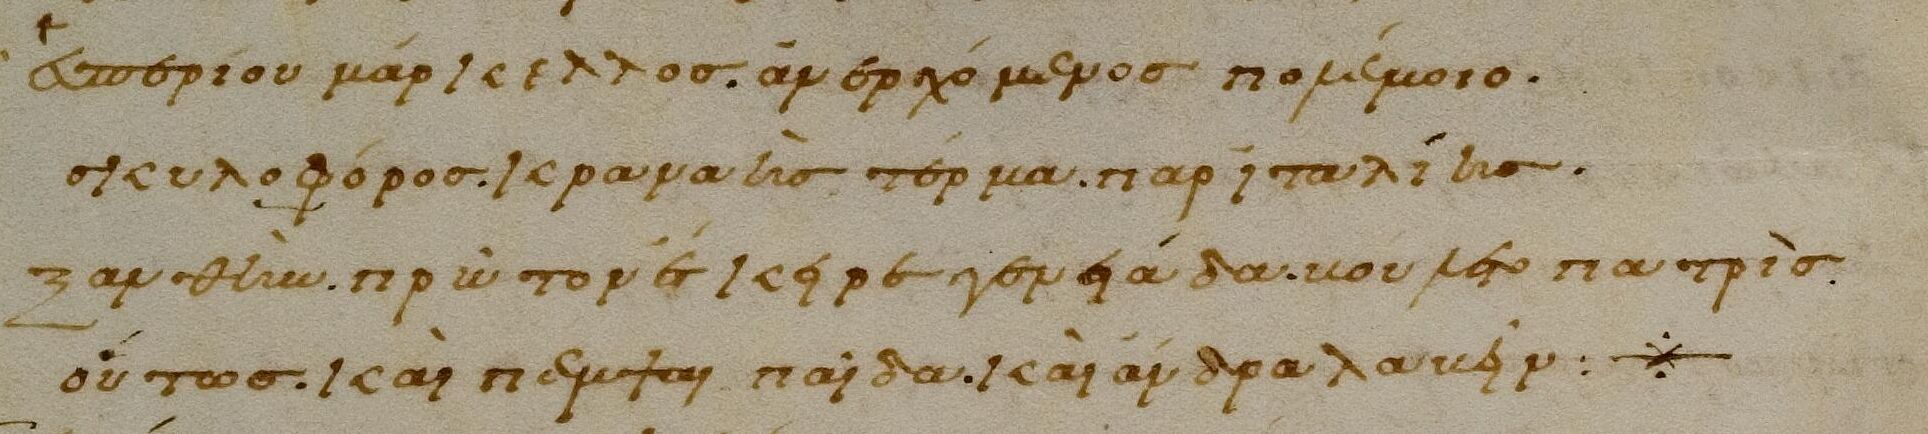 ἑσπερίου μάρκελλος. ἀνερχόμενος πολέμοιο.
σκυλοφόρος. κραναῆς τέρμα. παρ ἰταλίης.
ξανθὴν. πρῶτον ἔκειρε γενειάδα. βούλετο πατρὶς.
οὕτως. καὶ πέμψαι παῖδα. καὶ ἄνδρα λαβεῖν :